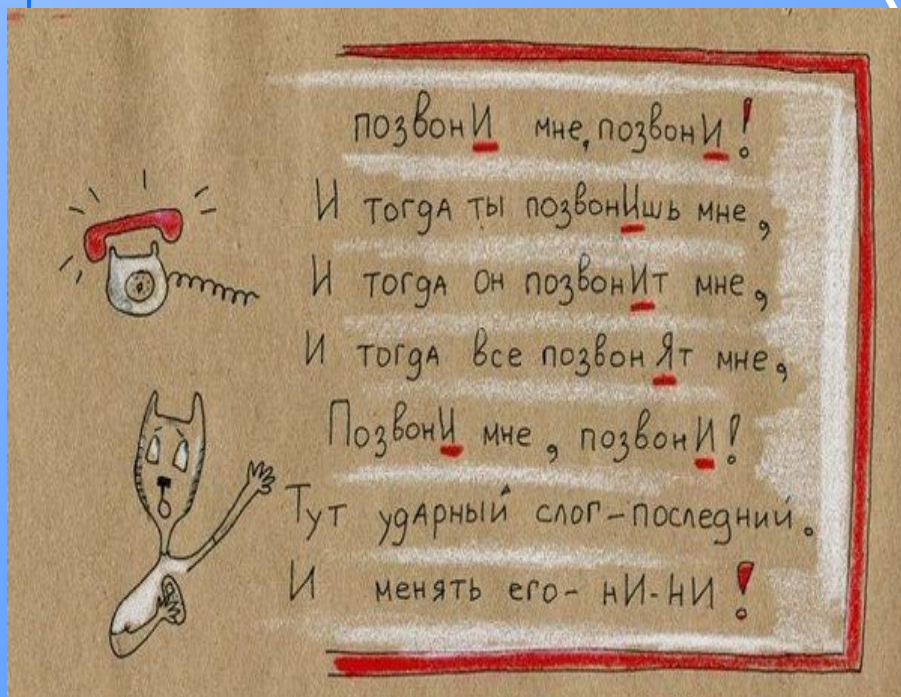 позвонИ мне, позвонИ!
И тогдА ты позвонИшь мне,
И тогдА он позвонИт мне,
И тогдА все позвонЯт мне,
ПозвонИ мне, позвонИ!
Тут удАрный слог-последний.
И менять его- нИ-нИ!